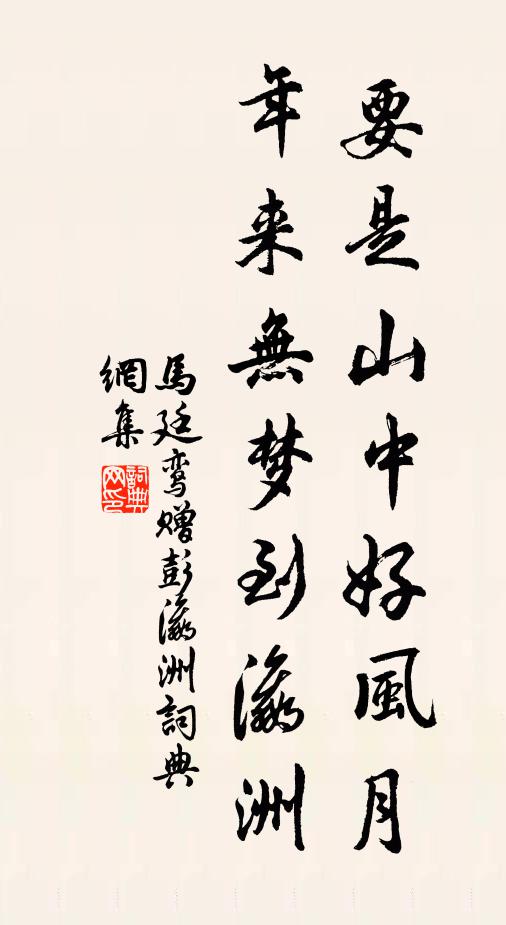 要是山中好風月
年来無梦到瀛洲
馬廷鸾贈彭瀛洲詞典
網集
詞典
网印